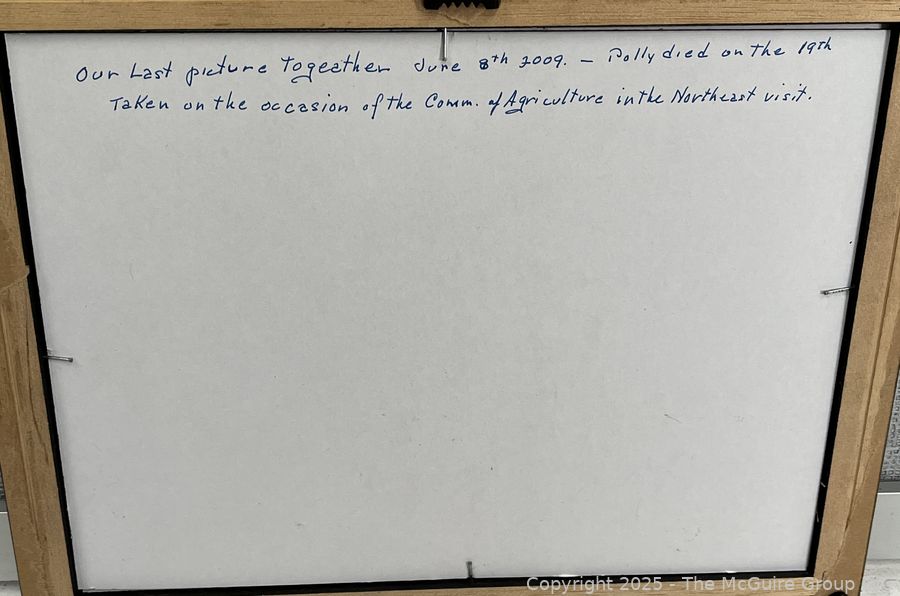 Our Last picture Togeather June 8th 2009. - Polly died on the 19th
Taken on the occasion of the Comm. of Agriculture in the Northeast visit.
Copyright 2025 - The McGuire Group